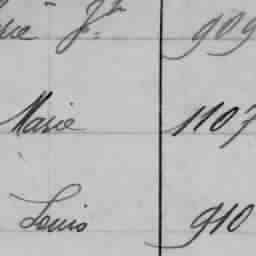 909
Marie 1107
Louis 910